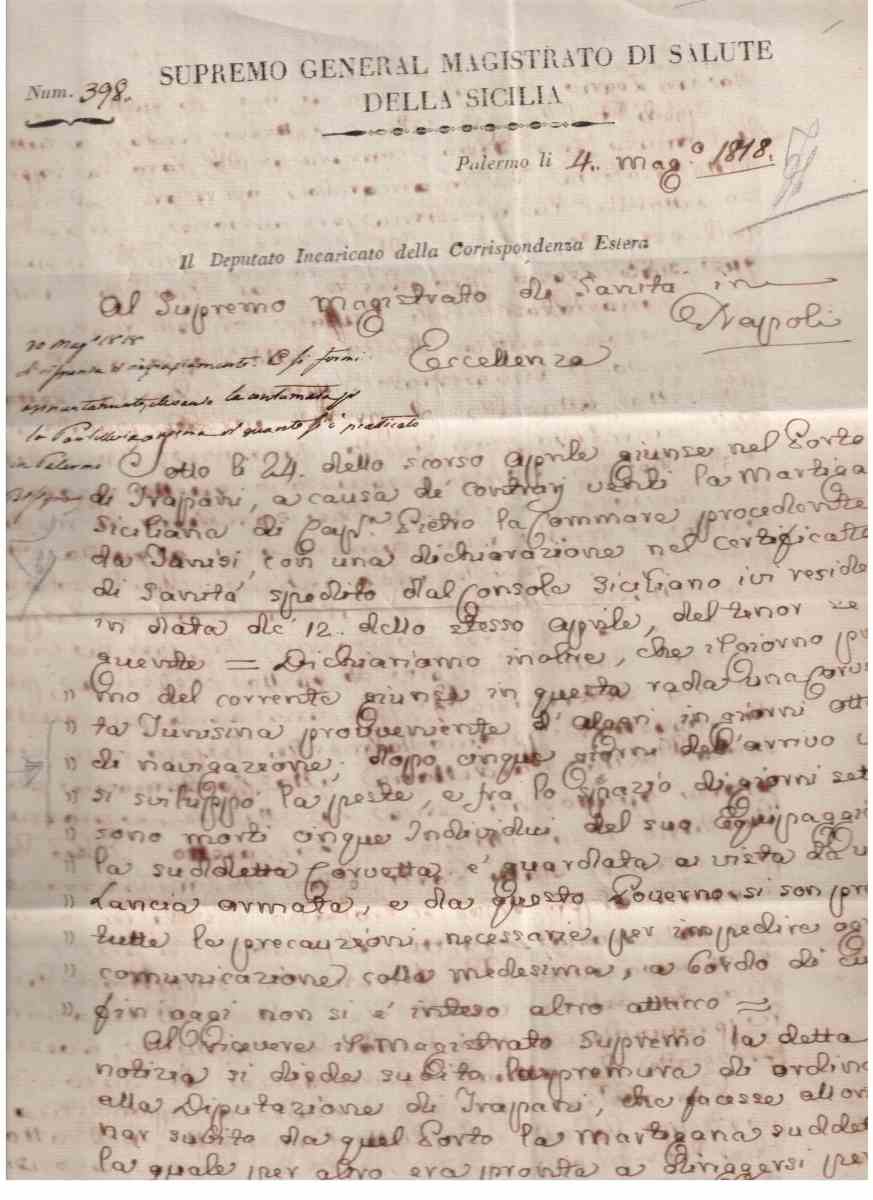 SUPREMO GENERAL MAGISTRATO DI SALUTE
Num. 398.
DELLA SICILIA
Palermo li 4. Mag.º 1818.
Il Deputato Incaricato della Corrispondenza Estera
Al Supremo Magistrato di Sanità in
Napoli
20 Mag.º 1818
Eccellenza
di ringraziamento. E si formi
la contumacia p
la di quanto si è praticato
in Palermo
Sotto li 24. dello scorso Aprile giunse nel Porto
di Trapani, a causa de' contrarj venti la Martiga
Siciliana di Cap.n Pietro la Commare procedente
da Tunisi, con una dichiarazione nel certificato
di Sanità spedito dal Console Siciliano ivi reside
in data de' 12. dello stesso Aprile, del tenor se
guente = Dichiariamo inoltre, che il giorno pri
" mo del corrente giunse in questa rada una Corvet
" ta Tunisina proveniente d'Algeri in giorni otto
" di navigazione; dopo cinque giorni dell'arrivo
" si sviluppò la peste, e fra lo spazio di giorni set
" sono morti cinque Individui del suo Equipaggio
" la suddetta Corvetta è guardata a vista da u
" Lancia armata, e da questo Governo si son pre
" tutte le precauzioni necessarie per impedire og
" comunicazione colla medesima, a bordo di cu
" fin oggi non si è inteso altro attacco =
Al ricevere il Magistrato Supremo la detta
notizia si diede subito la premura di ordina
alla Diputazione di Trapani, che facesse allon
nar subito da quel Porto la Martigana suddet
la quale per altro era pronta a diriggersi per